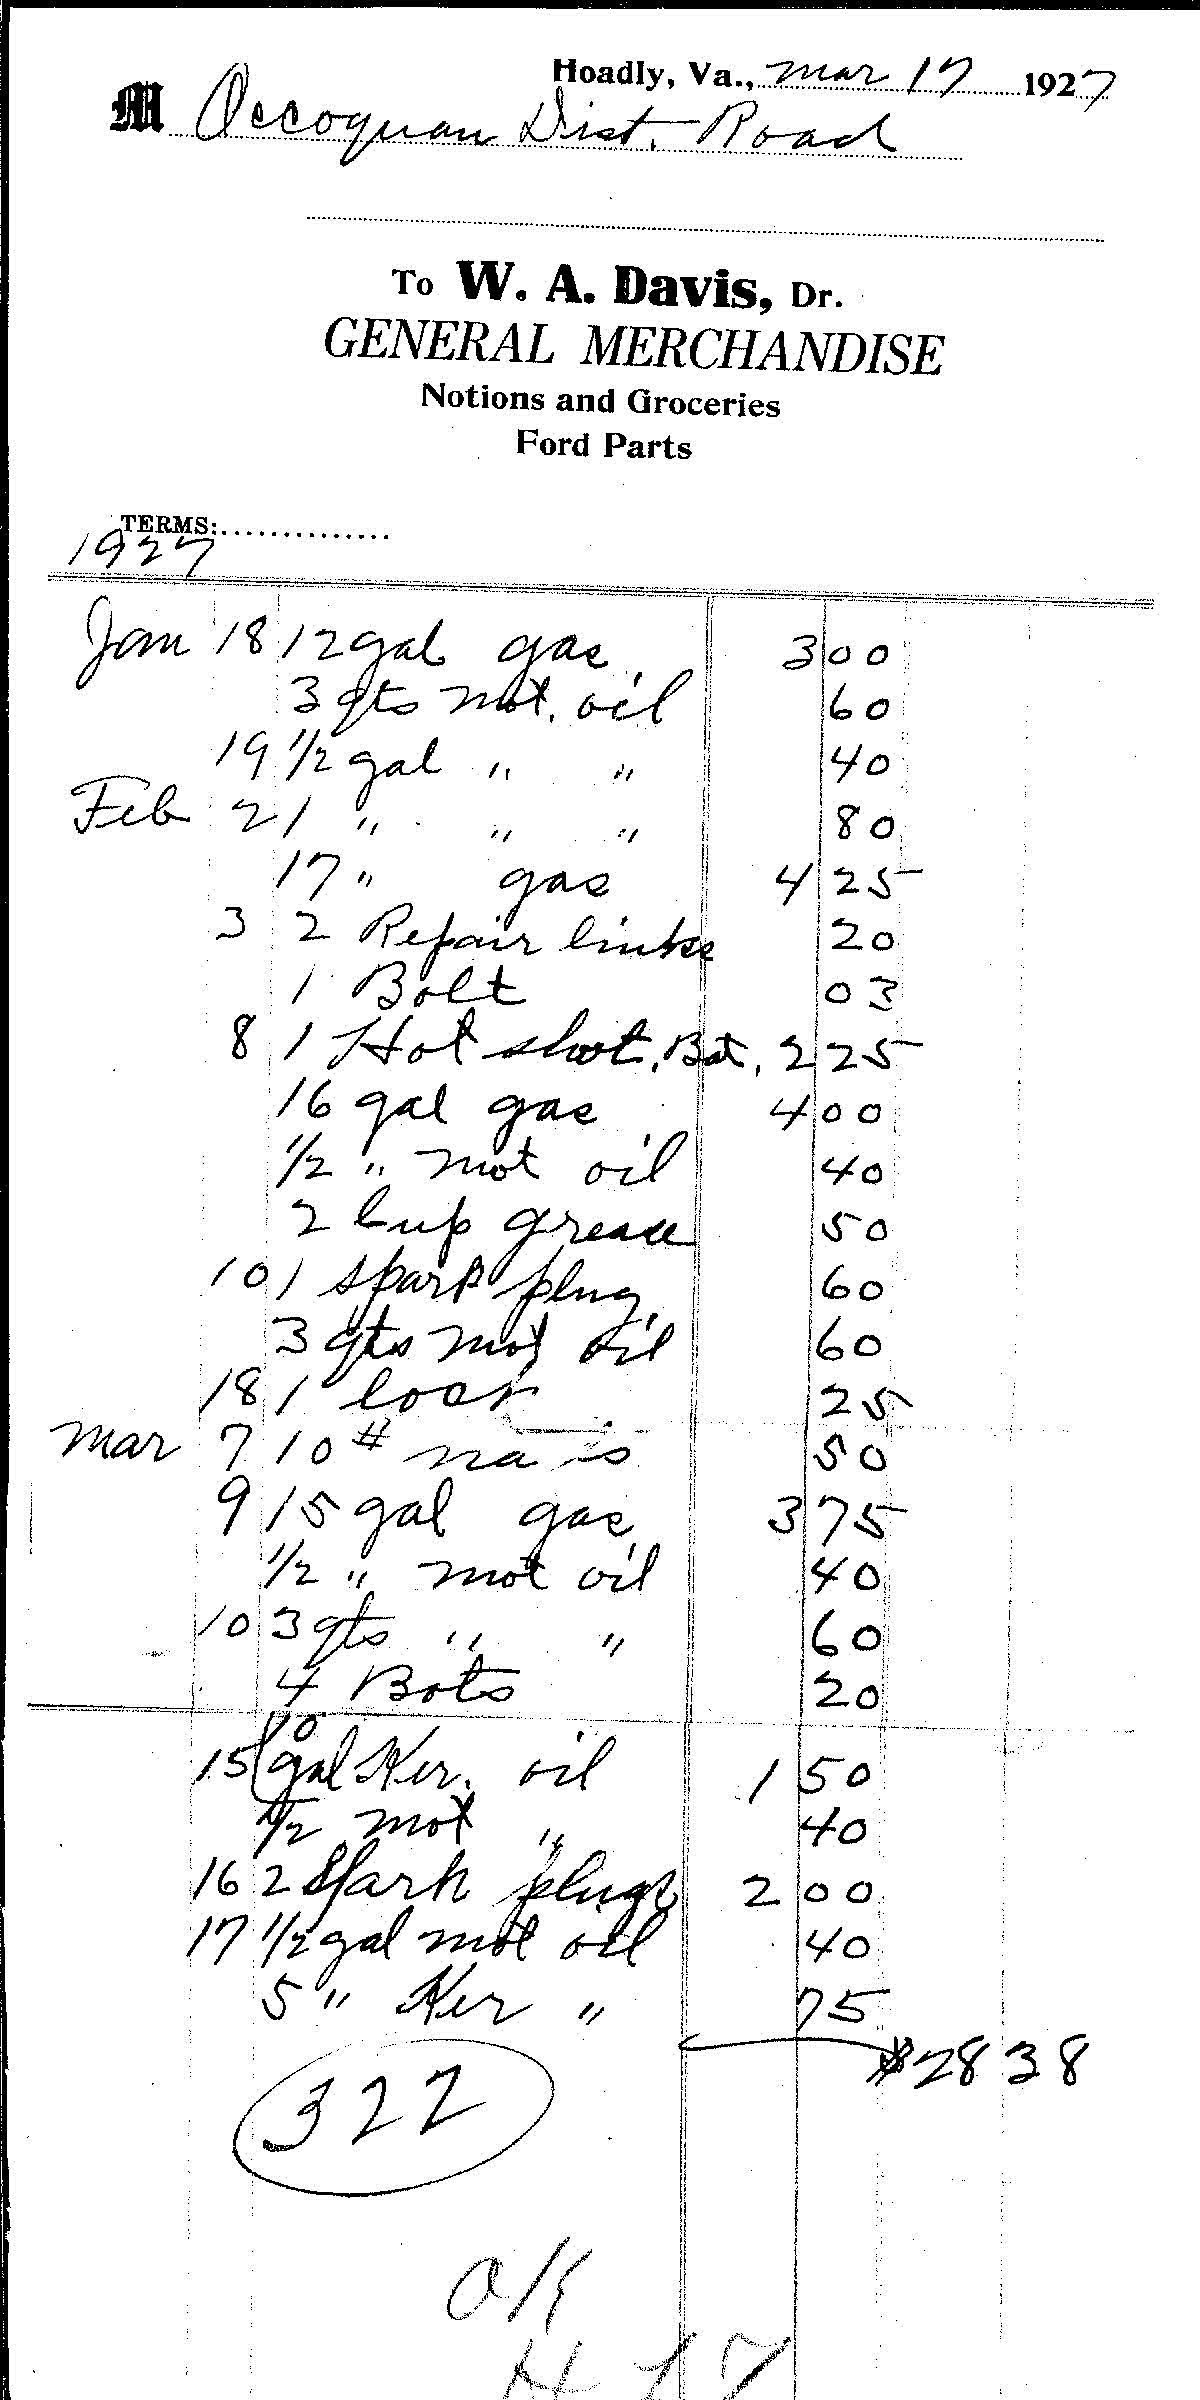 Hoadly, Va., Mar 17 1927
M Occoquan Dist. Road
To W. A. Davis, Dr.
GENERAL MERCHANDISE
Notions and Groceries
Ford Parts
TERMS:..............
1927
Jan 18 12 gal gas 3 00
3 qts mot. oil 60
19 1/2 gal " " 40
Feb 2 1 " " " 80
17 " gas 4 25
3 2 Repair links 20
1 Bolt 03
8 1 Hot shot. Bat. 2 25
16 gal gas 4 00
1/2 " mot oil 40
2 Cup grease 50
10 1 spark plug 60
3 qts mot oil 60
18 1 lock 25
Mar 7 10 # nails 50
9 15 gal gas 3 75
1/2 " mot oil 40
10 3 qts " " 60
4 Bots 20
15 10 gal Ker. oil 1 50
1/2 mot " 40
16 2 Spark plugs 2 00
17 1/2 gal mot oil 40
5 " Ker " 75
$28 38
322
O/K